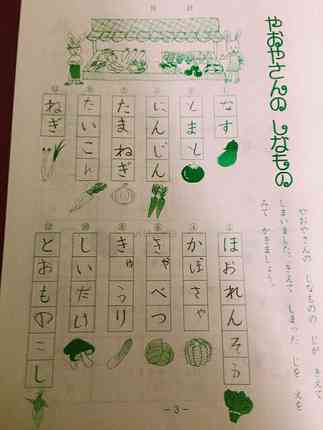 やおやさんの しなもの
やおやさんの しなものの じが きえて
しまいました。きえて しまった じを えを
みて かきましょう。
なす
ほおれんそう
とまと
かぼさゃ
にんじん
きゃべつ
たまねぎ
きゅうり
たいこん
しいたけ
ねぎ
とおものこし
—3—